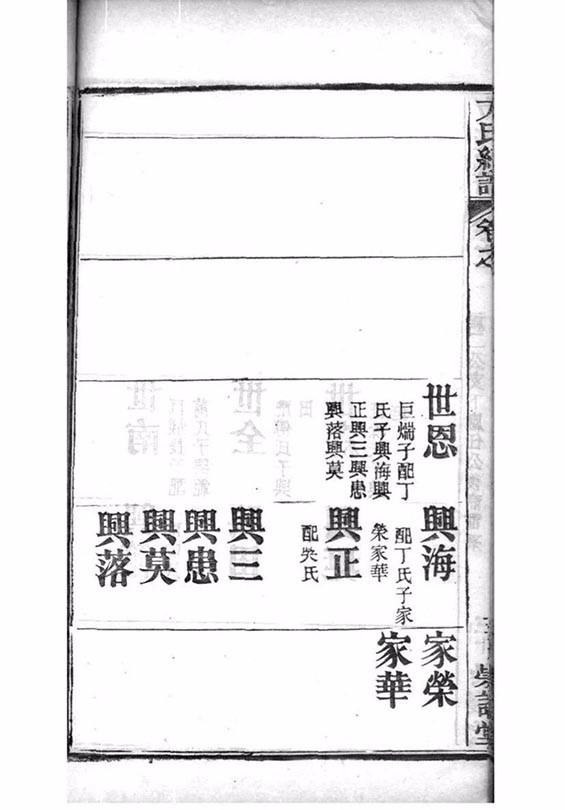 卷之
世恩
巨煓子配丁
氏子興海興
正興三興患
興落興莫
興海
配丁氏子家
榮家華
興正
配吳氏
興三
興患
興莫
興落
家榮
家華